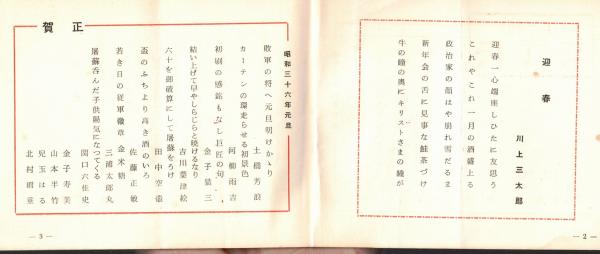 迎春
川上三太郎
迎春一心端座しひたに友思う
これやこれ一月の酒盛上る
政治家の顔はや崩れ雪だるま
新年会の舌に見事な鮭茶づけ
牛の瞳の奥にキリストさまの瞳が
— 2 —
賀正
昭和三十六年元旦
敗軍の将へ元旦明けかゝり
土橋芳浪
カーテンの環走らせる初景色
河柳雨吉
初刷の感銘もなし巨匠の句
金子呈三
結い上げて早やしらじらと暁けるなり
吉川葉津絵
六十を御破算にして屠蘇をうけ
田中空壺
盃のふちより高き酒のいろ
佐藤正敏
若き日の従軍徽章金米糖
三浦太郎丸
屠蘇呑んだ子供陽気になつてくる
関口六佳史
金子寿美
山本半竹
児玉はる
北村
— 3 —